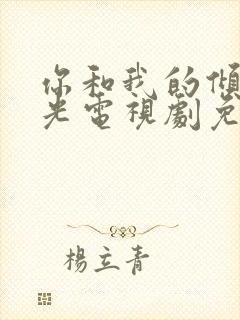 你和我的傾
光電視劇免
楊立青